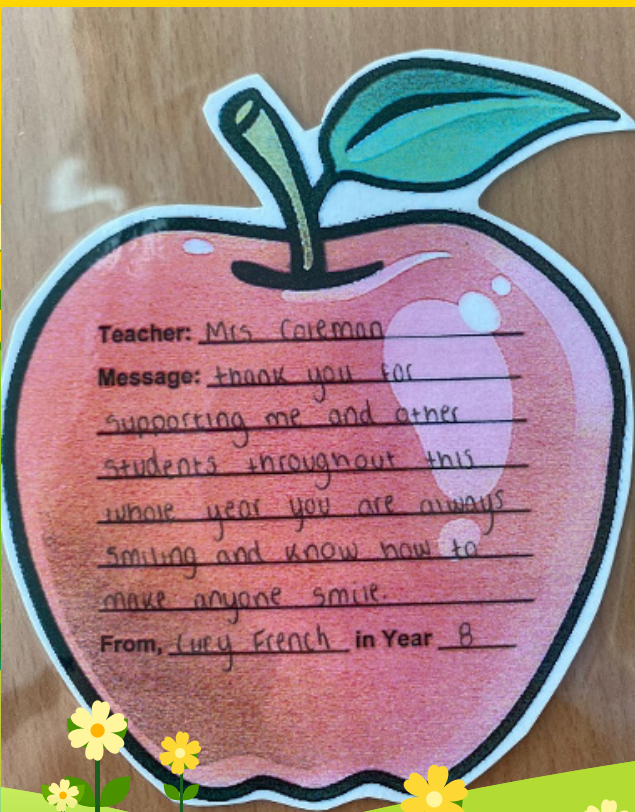 Teacher: Mrs Coleman
Message: thank you for
supporting me and other
students throughout this
whole year you are always
smiling and know how to
make anyone smile.
From, Lucy French in Year 8